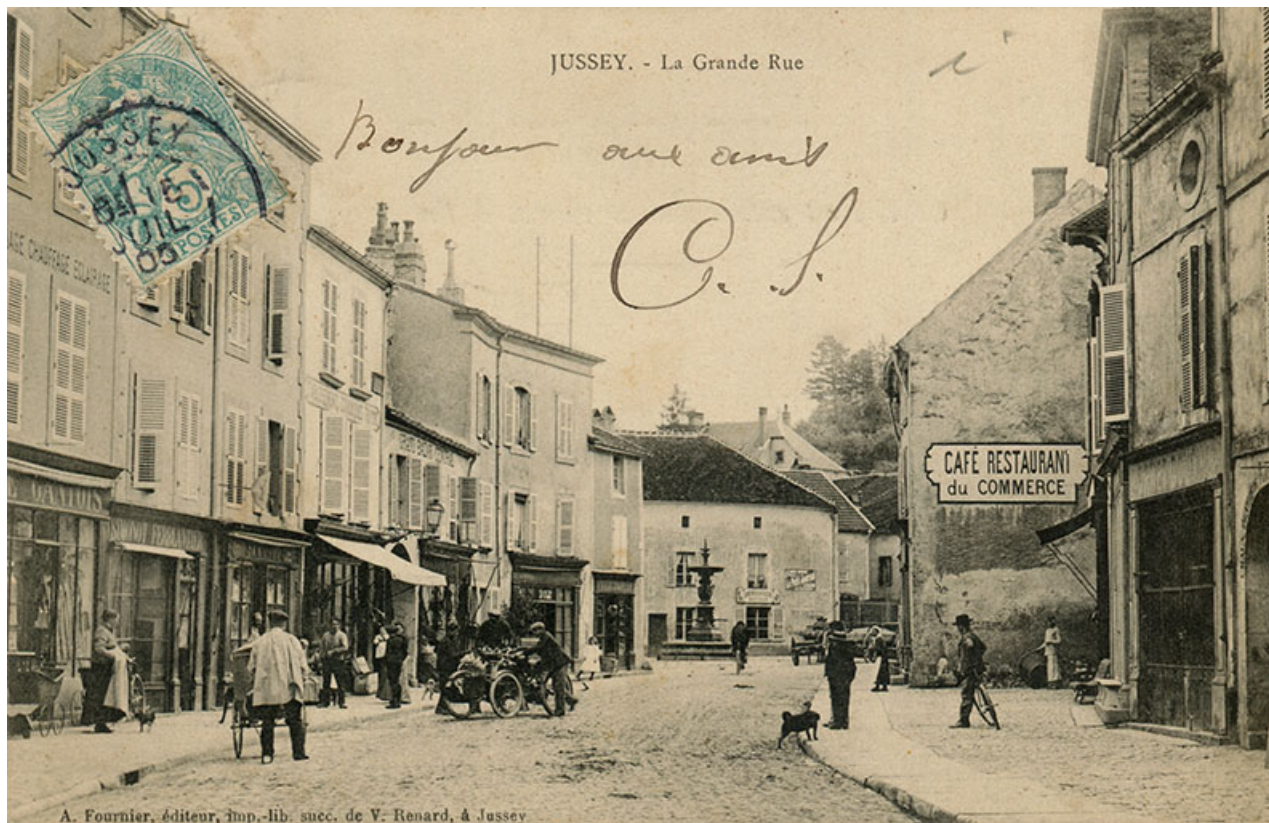 JUSSEY. - La Grande Rue
Bonjour aux amis
C. S.
JUSSEY
JUIL
05
5
POSTES
AGE CHAUFFAGE ECLAIRAGE
CAFÉ RESTAURANT
du COMMERCE
A. Fournier, éditeur, imp.-lib. succ. de V. Renard, à Jussey